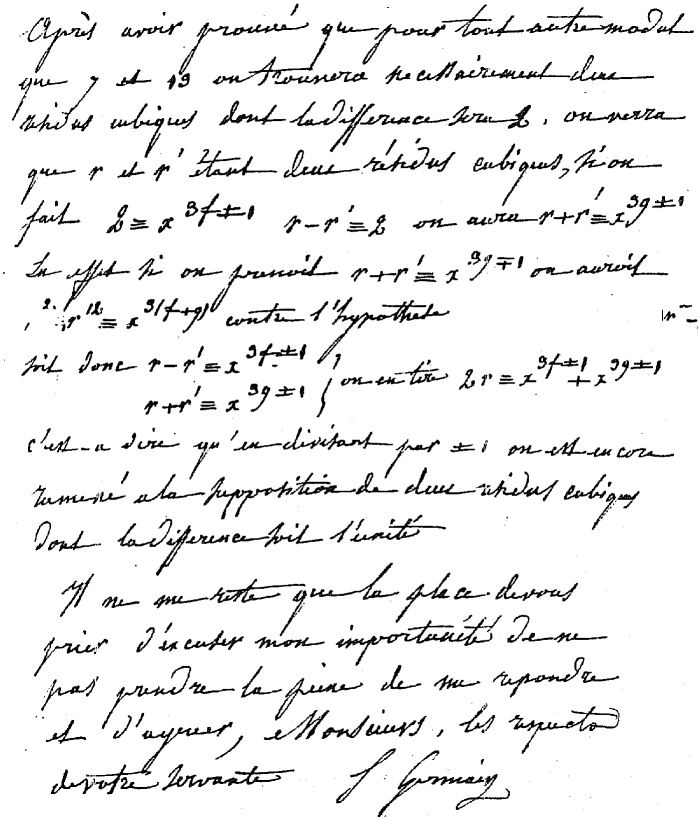 Après avoir prouvé que pour tout autre modul
que 7 et 13 on trouvera necessairement deux
residus cubiques dont la difference sera 2, on verra
que r et r' étant deux résidus cubiques, si on
fait 2 ≡ x^{3f±1} r-r' ≡ 2 on aura r+r' ≡ x^{3g±1}
En effet si on prenoit r+r' ≡ x^{3g∓1} on auroit
r'^2 ≡ x^{3(f+g)} contre l'hypothèse
soit donc r-r' ≡ x^{3f±1}
r+r' ≡ x^{3g±1} } on en tire 2r ≡ x^{3f±1} + x^{3g±1}
c'est-a dire qu'en divisant par ±1 on est encore
ramené a la supposition de deux residus cubiques
dont la difference soit l'unité
Il ne me reste que la place de vous
prier d'éxcuser mon importunité de ne
pas prendre la peine de me repondre
et d'agreer, Monsieurs, les respects
de votre servante S Germain